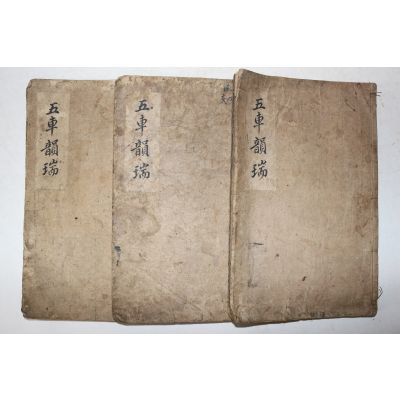 五車韻瑞
五車韻瑞
五車韻瑞